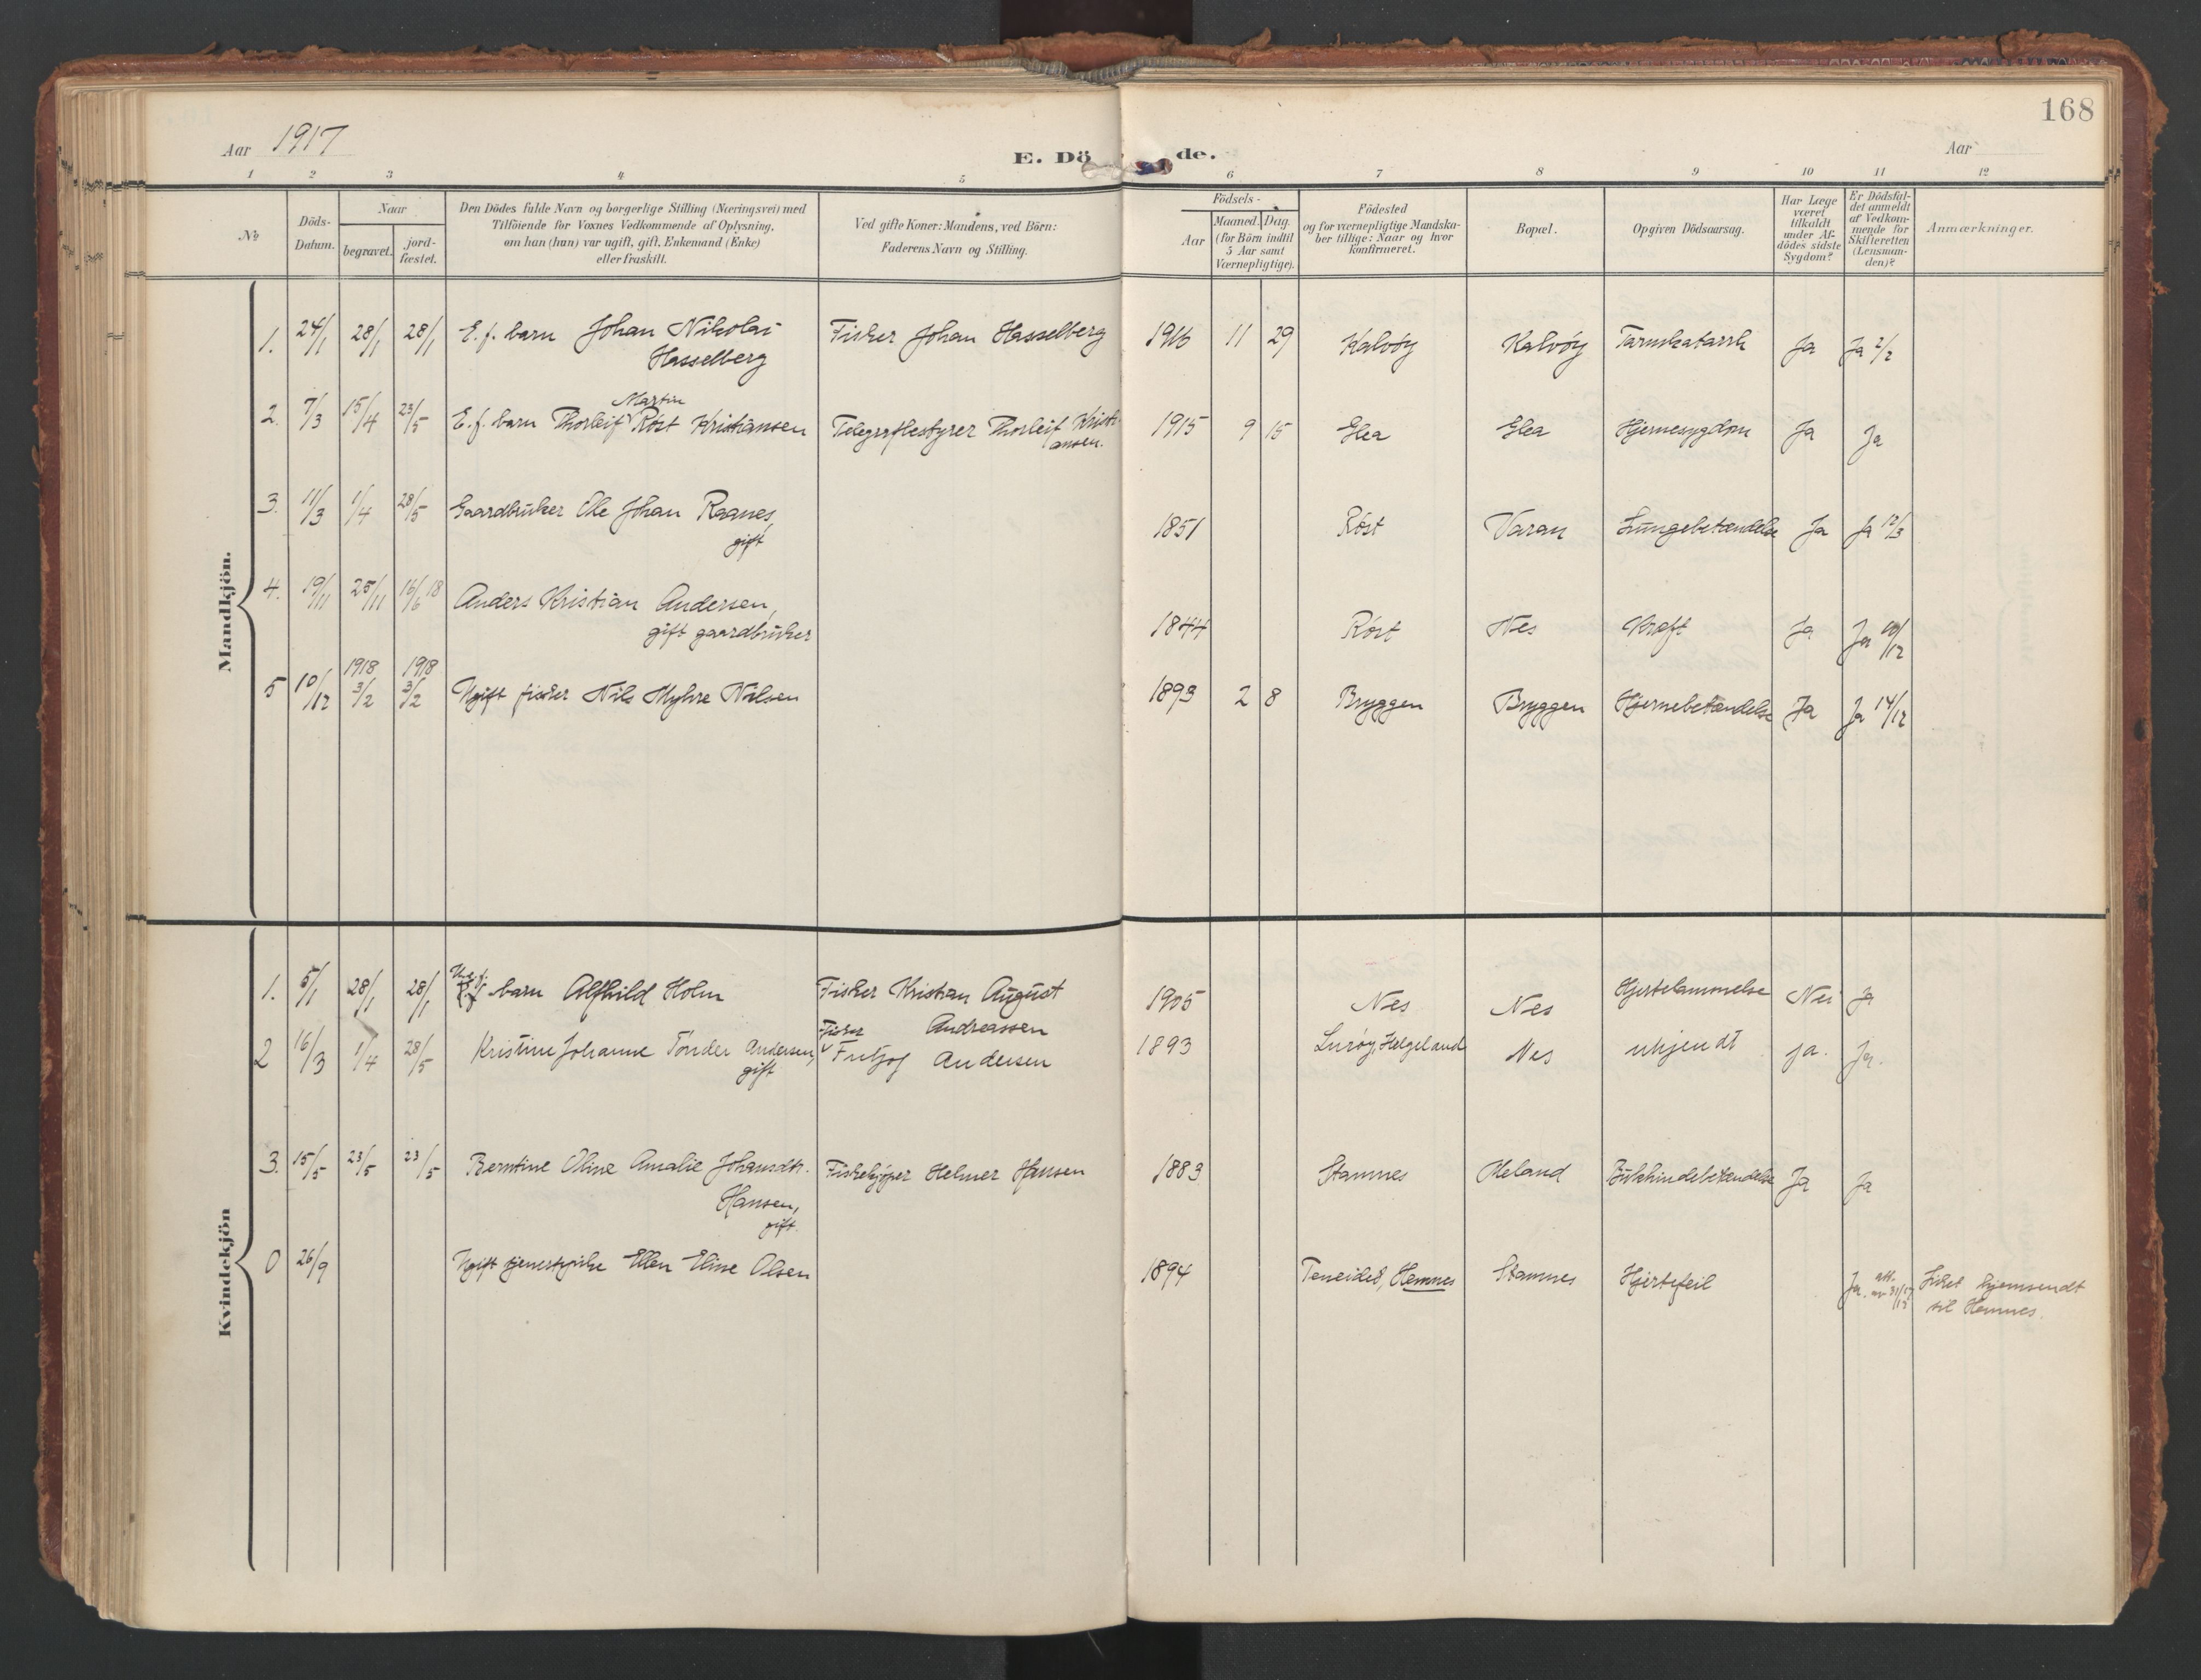 168
Aar 1917
E. Dö de.
Aar
1 2 3 4 5 6 7 8 9 10 11 12
No
Döds-Datum.
Naar
begravet.
jord-fæstet.
Den Dödes fulde Navn og borgerlige Stilling (Næringsvei) med
Tilföiende for Voxnes Vedkommende af Oplysning,
om han (hun) var ugift, gift, Enkemand (Enke)
eller fraskilt.
Ved gifte Koner: Mandens, ved Börn:
Faderens Navn og Stilling.
Födsels -
Aar
Maaned. Dag.
(for Börn indtil
5 Aar samt
Værnepligtige).
Födested
og for værnepligtige Mandska-
ber tillige: Naar og hvor
konfirmeret.
Bopæl.
Opgiven Dödsaarsag.
Har Læge
været
tilkaldt
under Af-
dödes sidste
Sygdom?
Er Dödsfal-
det anmeldt
af Vedkom-
mende for
Skifteretten
(Lensman-
den)?
Anmærkninger.
Mandkjön.
1. 24/1 28/1 28/1 E. f. barn Johan Nikolai Fisker Johan Hasselberg 1916 11 29 Kalvöy Kalvöy Tarmkatarrh Ja Ja 2/2
Hasselberg
Martin
2. 7/3 15/4 23/5 E. f. barn Thorleif Röst Kristiansen Telegrafbestyrer Thorleif Kristi- 1915 9 15 Glea Glea Hjernesygdom Ja Ja
ansen.
3. 11/3 1/4 28/5 Gaardbruker Ole Johan Raanes, 1851 Röst Varan Lungebetændelse Ja Ja 12/3
gift
4. 19/11 25/11 16/6 18 Anders Kristian Andersen, 1844 Röst Nes Kræft Ja Ja 10/12
gift gaardbruker
1918 1918
5 10/12 3/2 3/2 Ugift fisker Nils Myhre Nilsen 1893 2 8 Bryggen Bryggen Hjernebetændelse Ja Ja 14/12
Kvindekjön
1. 5/1 28/1 28/1 barn Alfhild Holm Fisker Kristian August 1905 Nes Nes Hjertelammelse Nei Ja
Andreassen
Fisker
2 16/3 1/4 28/5 Kristine Johanne Tönder Andersen, Fritjof Andersen 1893 Luröy, Helgeland Nes ukjendt ja. Ja.
gift
3. 15/5 23/5 23/5 Berntine Oline Amalie Johansdtr. Fiskekjøper Helmer Hansen 1883 Stamnes Meland Bukhindebetændelse Ja Ja
Hansen,
gift.
0 26/9 Ugift tjenestpike Ellen Eline Olsen 1894 Teneidet, Hemnes Stamnes Hjertefeil Ja. att. Liket hjemsendt
til Hemnes.